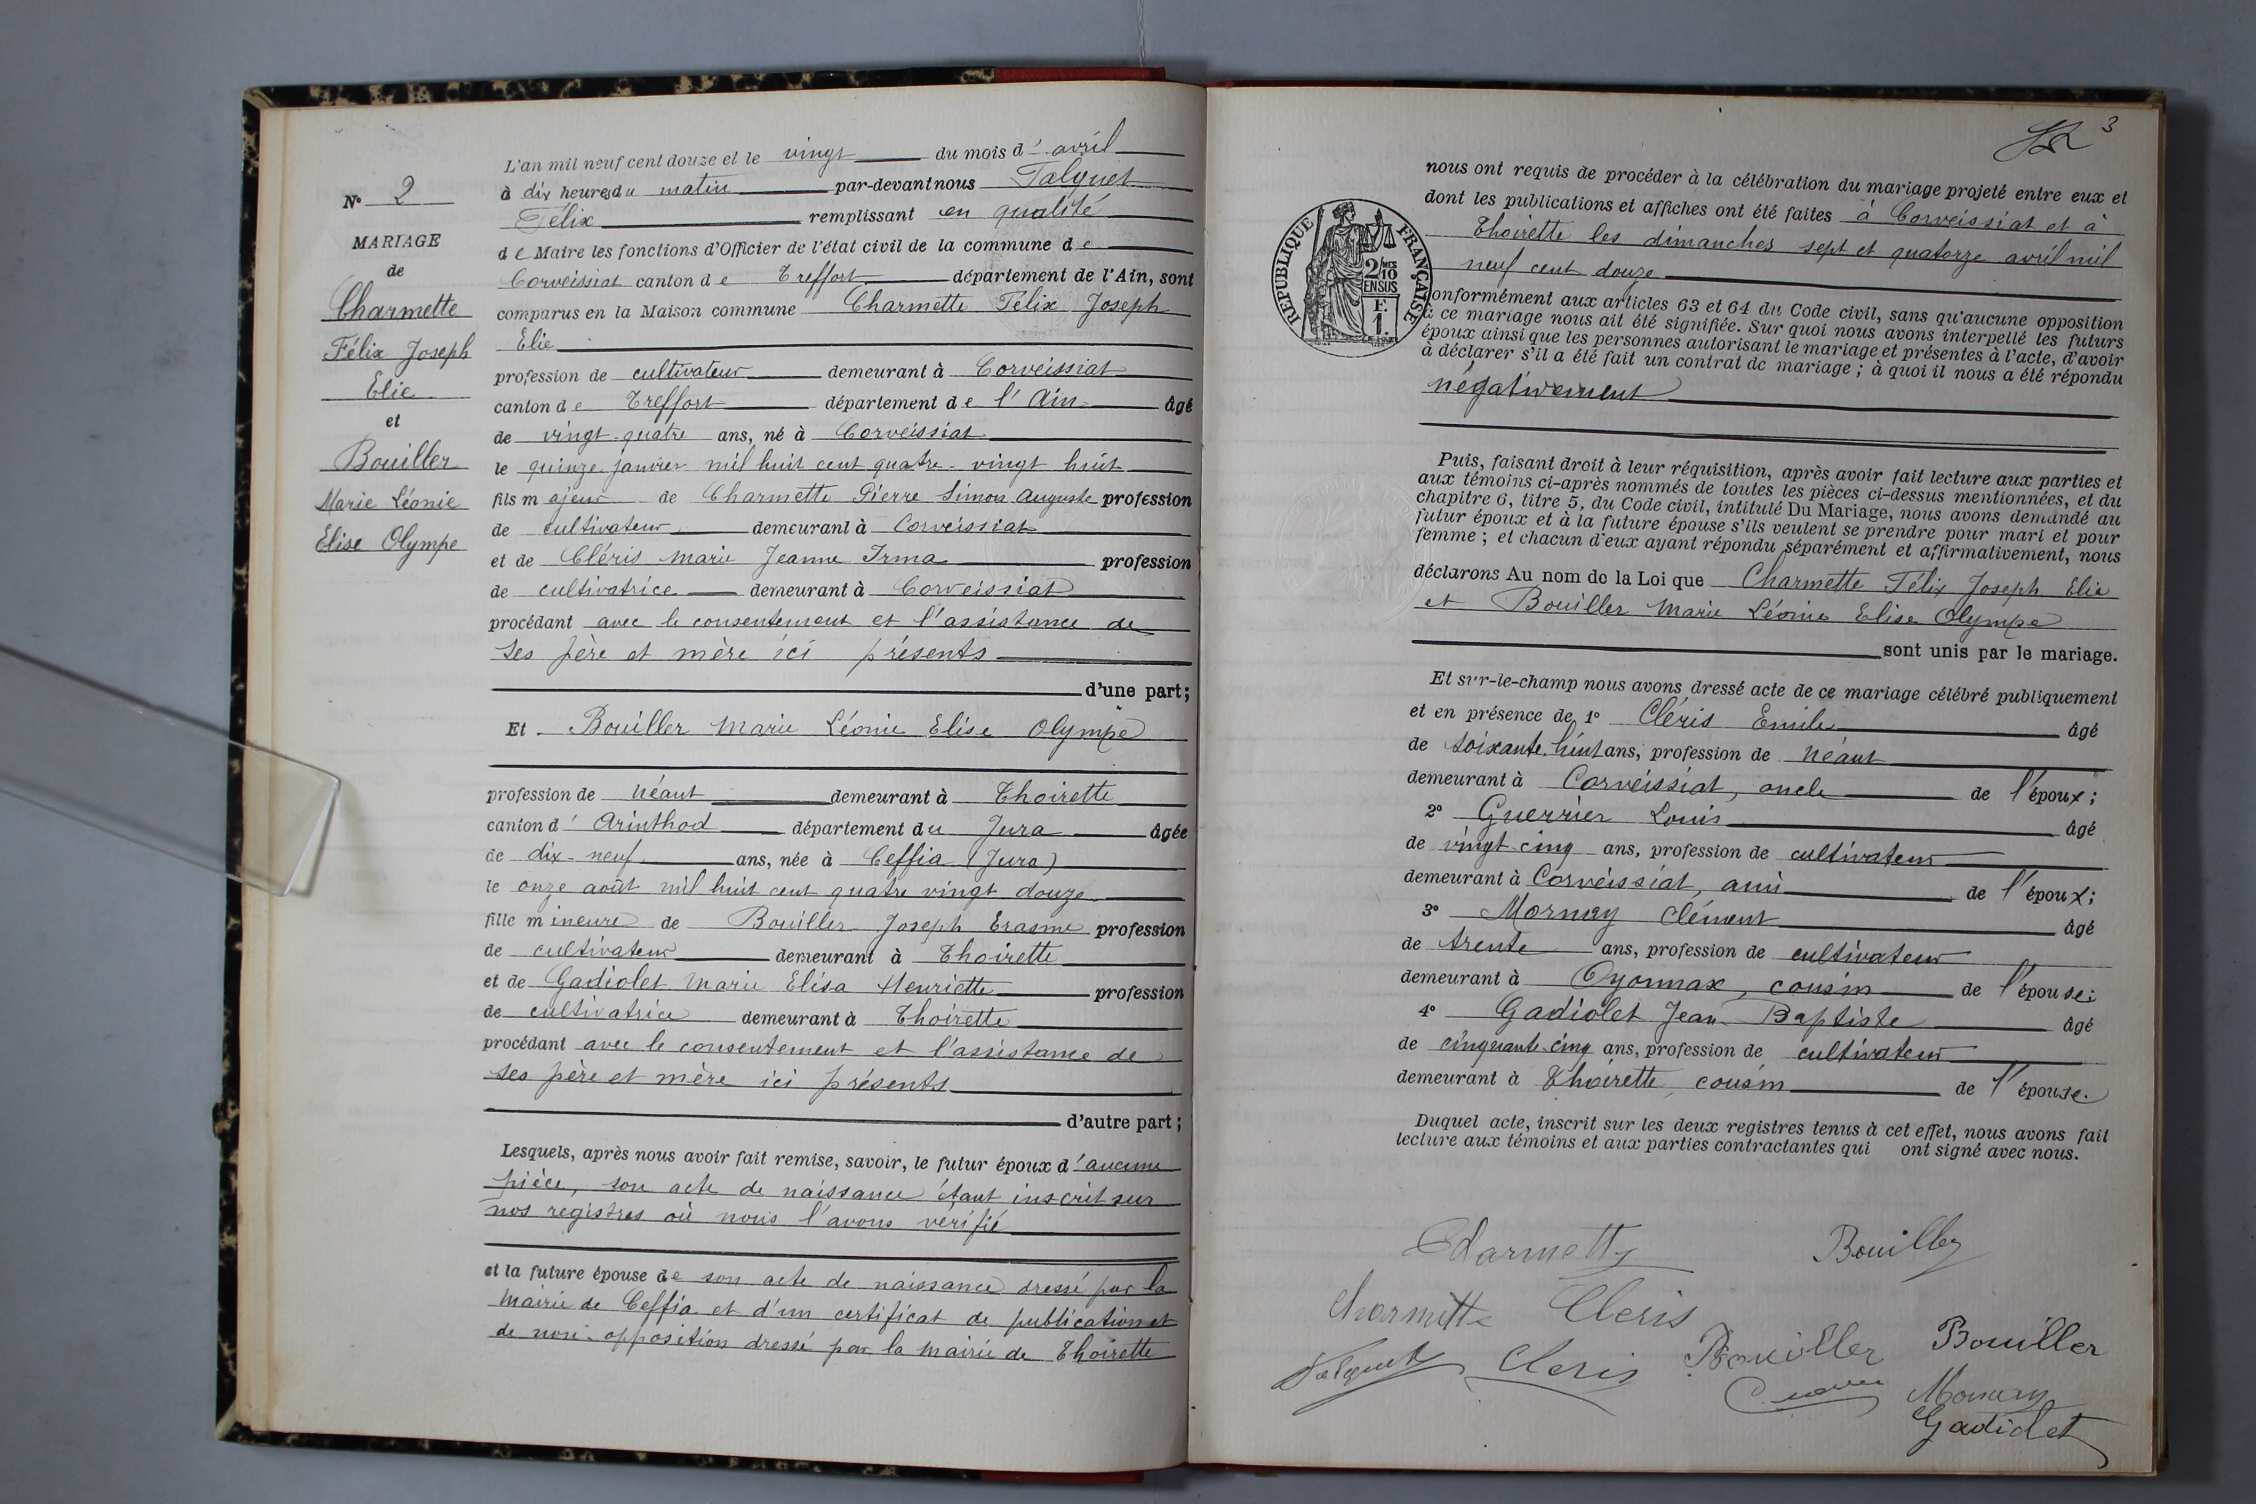 N° 2
MARIAGE
de
Charmette
Félix Joseph
Elie
et
Bouiller
Marie Léonie
Elise Olympe
L'an mil neuf cent douze et le vingt du mois d'avril
à dix heures du matin par-devant nous Talquet
Félix remplissant en qualité
de Maire les fonctions d'Officier de l'état civil de la commune de
Corveissiat canton de Treffort département de l'Ain, sont
comparus en la Maison commune Charmette Félix Joseph
Elie
profession de cultivateur demeurant à Corveissiat
canton de Treffort département de l'Ain âgé
de vingt-quatre ans, né à Corveissiat
le quinze janvier mil huit cent quatre-vingt huit
fils majeur de Charmette Pierre Simon Auguste profession
de cultivateur demeurant à Corveissiat
et de Cléris Marie Jeanne Irma profession
de cultivatrice demeurant à Corveissiat
procédant avec le consentement et l'assistance de
ses père et mère ici présents
d'une part;
Et Bouiller Marie Léonie Elise Olympe
profession de néant demeurant à Thoirette
canton d'Arinthod département du Jura âgée
de dix-neuf ans, née à Ceffia (Jura)
le onze août mil huit cent quatre vingt douze
fille mineure de Bouiller Joseph Erasme profession
de cultivateur demeurant à Thoirette
et de Gadiolet Marie Elisa Henriette profession
de cultivatrice demeurant à Thoirette
procédant avec le consentement et l'assistance de
ses père et mère ici présents
d'autre part;
Lesquels, après nous avoir fait remise, savoir, le futur époux d'aucune
pièce, son acte de naissance étant inscrit sur
nos registres où nous l'avons vérifié
et la future épouse de son acte de naissance dressé par la
Mairie de Ceffia et d'un certificat de publication et
de non-opposition dressé par la Mairie de Thoirette
3
nous ont requis de procéder à la célébration du mariage projeté entre eux et
dont les publications et affiches ont été faites à Corveissiat et à
Thoirette les dimanches sept et quatorze avril mil
neuf cent douze
REPUBLIQUE FRANÇAISE
2/10 MES
EN SUS
F.
1.
conformément aux articles 63 et 64 du Code civil, sans qu'aucune opposition
à ce mariage nous ait été signifiée. Sur quoi nous avons interpellé les futurs
époux ainsi que les personnes autorisant le mariage et présentes à l'acte, d'avoir
à déclarer s'il a été fait un contrat de mariage; à quoi il nous a été répondu
négativement
Puis, faisant droit à leur réquisition, après avoir fait lecture aux parties et
aux témoins ci-après nommés de toutes les pièces ci-dessus mentionnées, et du
chapitre 6, titre 5, du Code civil, intitulé Du Mariage, nous avons demandé au
futur époux et à la future épouse s'ils veulent se prendre pour mari et pour
femme; et chacun d'eux ayant répondu séparément et affirmativement, nous
déclarons Au nom de la Loi que Charmette Félix Joseph Elie
et Bouiller Marie Léonie Elise Olympe
sont unis par le mariage.
Et sur-le-champ nous avons dressé acte de ce mariage célébré publiquement
et en présence de 1° Cléris Emile âgé
de soixante-huit ans, profession de néant
demeurant à Corveissiat, oncle de l'époux;
2° Guerrier Louis âgé
de vingt-cinq ans, profession de cultivateur
demeurant à Corveissiat, ami de l'époux;
3° Mornay Clément âgé
de trente ans, profession de cultivateur
demeurant à Oyonnax, cousin de l'épouse;
4° Gadiolet Jean-Baptiste âgé
de cinquante-cinq ans, profession de cultivateur
demeurant à Thoirette, cousin de l'épouse.
Duquel acte, inscrit sur les deux registres tenus à cet effet, nous avons fait
lecture aux témoins et aux parties contractantes qui ont signé avec nous.
Charmette Bouiller
Charmette Cleris
Talquet Cleris Bouiller Bouiller
Mornay
Gadiolet